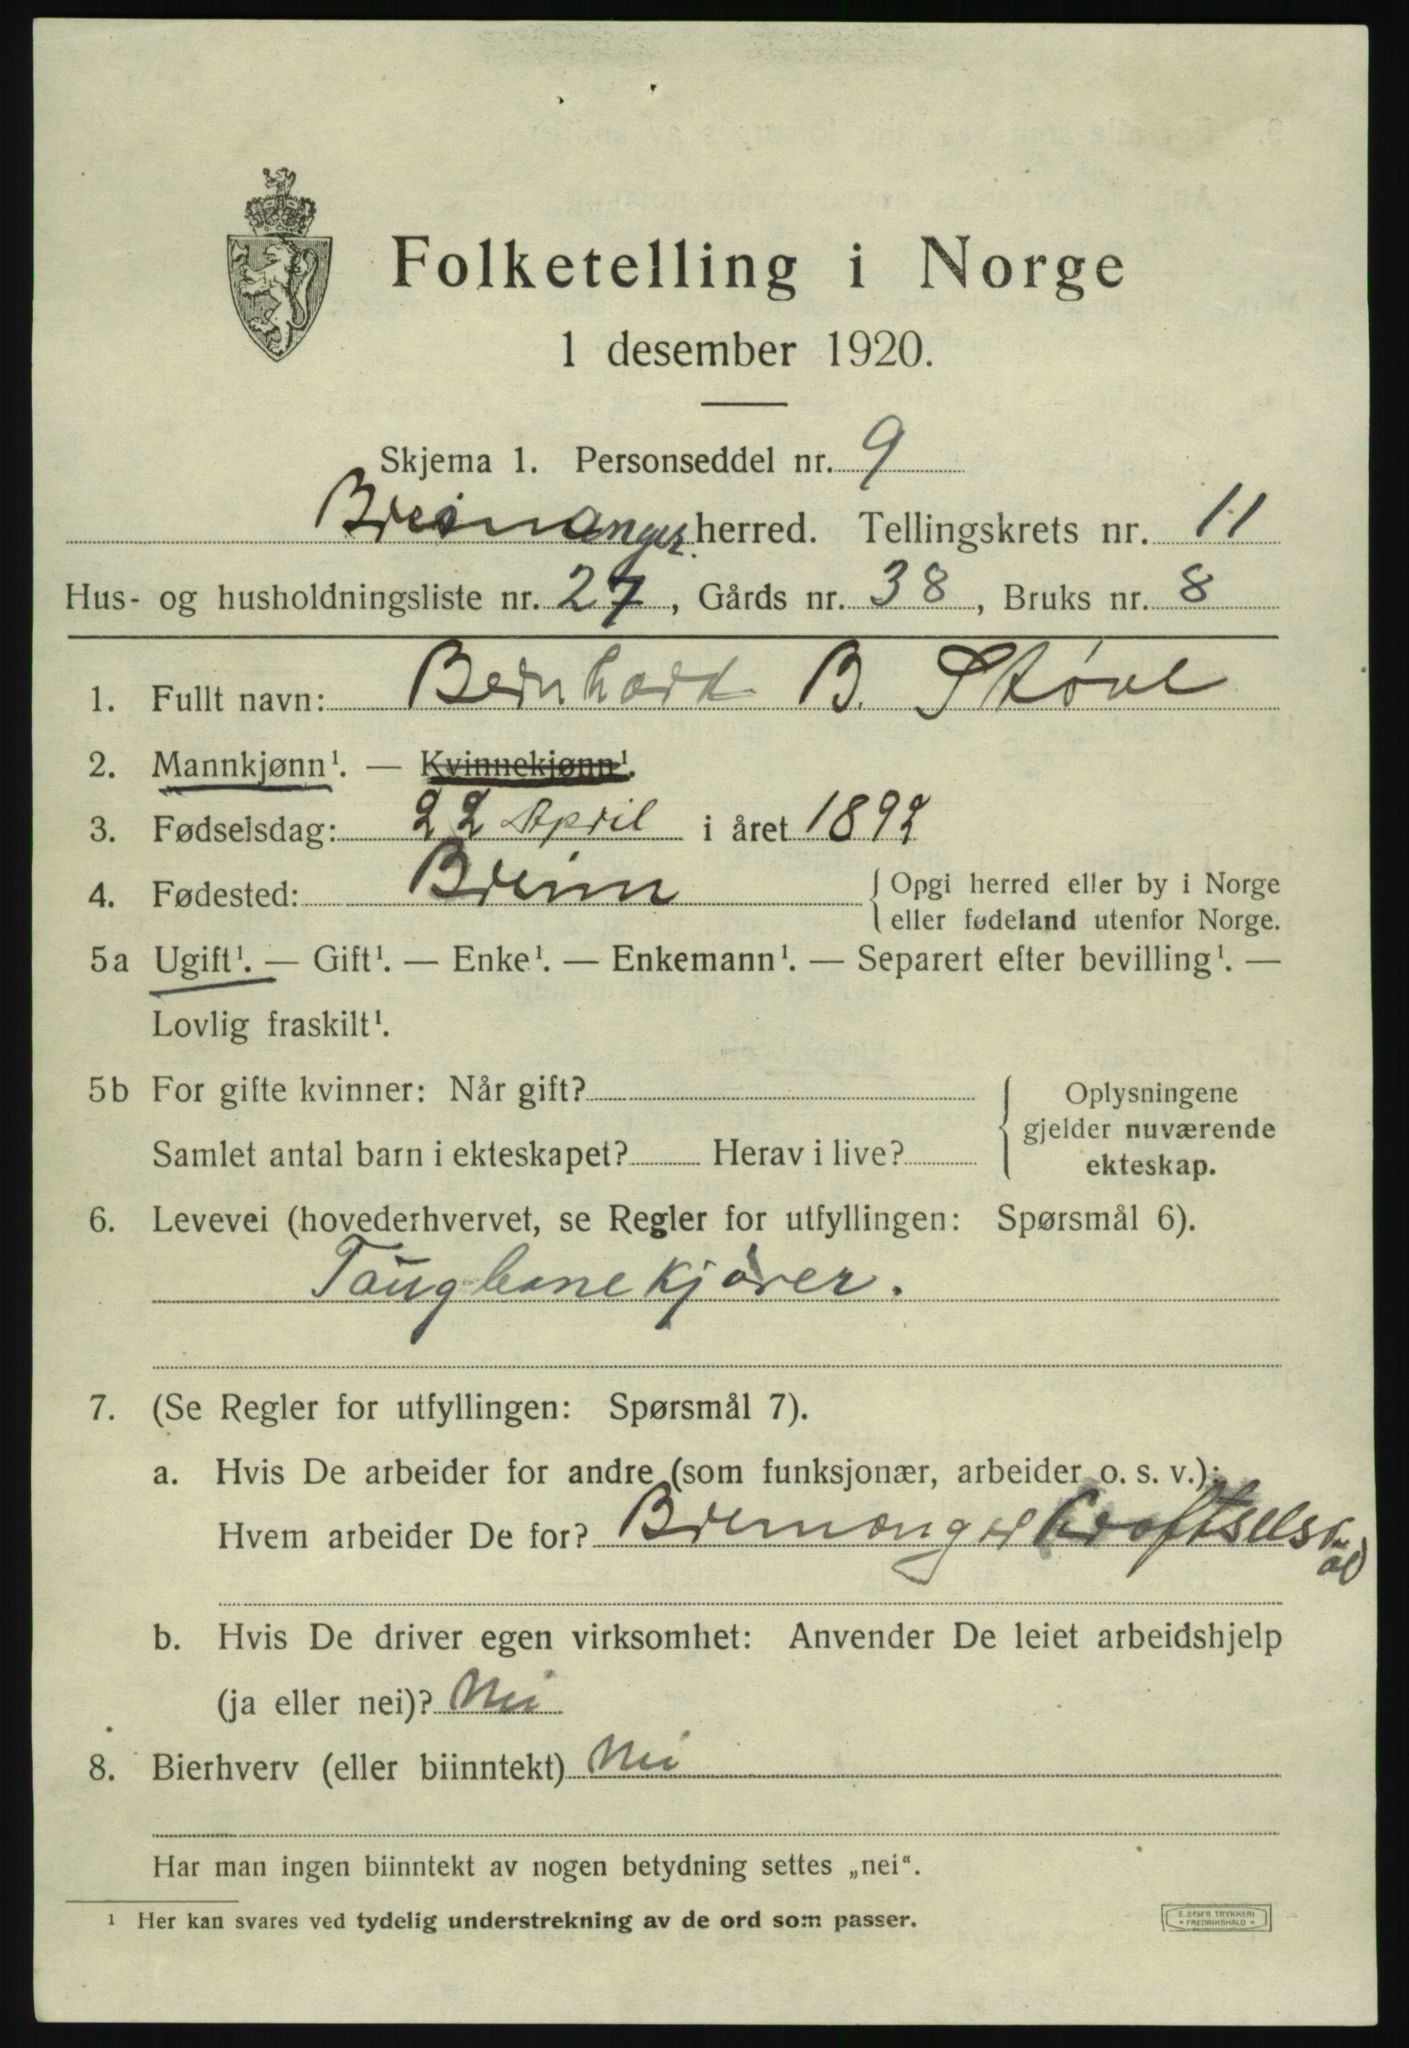 Folketelling i Norge
1 desember 1920.
Skjema 1. Personseddel nr. 9
Bremanger herred. Tellingskrets nr. 11
Hus- og husholdningsliste nr. 27, Gårds nr. 38, Bruks nr. 8
1. Fullt navn: Bernhard B. Støve
2. Mannkjønn¹. — Kvinnekjønn¹.
3. Fødselsdag: 22 April i året 1892
4. Fødested: Breim {Opgi herred eller by i Norge
eller fødeland utenfor Norge.
5a Ugift¹. — Gift¹. — Enke¹. — Enkemann¹. — Separert efter bevilling¹. —
Lovlig fraskilt¹.
5b For gifte kvinner: Når gift?
Samlet antal barn i ekteskapet? Herav i live?
{Oplysningene
gjelder nuværende
ekteskap.
6. Levevei (hovederhvervet, se Regler for utfyllingen: Spørsmål 6).
Taugbanekjører.
7. (Se Regler for utfyllingen: Spørsmål 7).
a. Hvis De arbeider for andre (som funksjonær, arbeider o. s. v.):
Hvem arbeider De for? Bremanger Kraftselsk
b. Hvis De driver egen virksomhet: Anvender De leiet arbeidshjelp
(ja eller nei)? Nei
8. Bierhverv (eller biinntekt) Nei
Har man ingen biinntekt av nogen betydning settes „nei“.
¹ Her kan svares ved tydelig understrekning av de ord som passer.
E. SEM'S TRYKKERI
* FREDRIKSHALD *